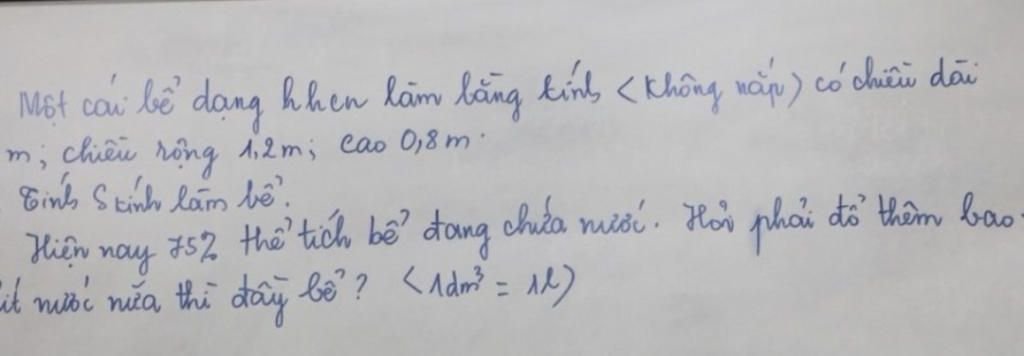 Một cái bể dạng hhcn làm bằng kính (không nắp) có chiều dài
m; chiều rộng 1,2m; cao 0,8m.
Tính S kính làm bể.
Hiện nay 75% thể tích bể đang chứa nước. Hỏi phải đổ thêm bao
lít nước nữa thì đầy bể? (1dm³ = 1l)